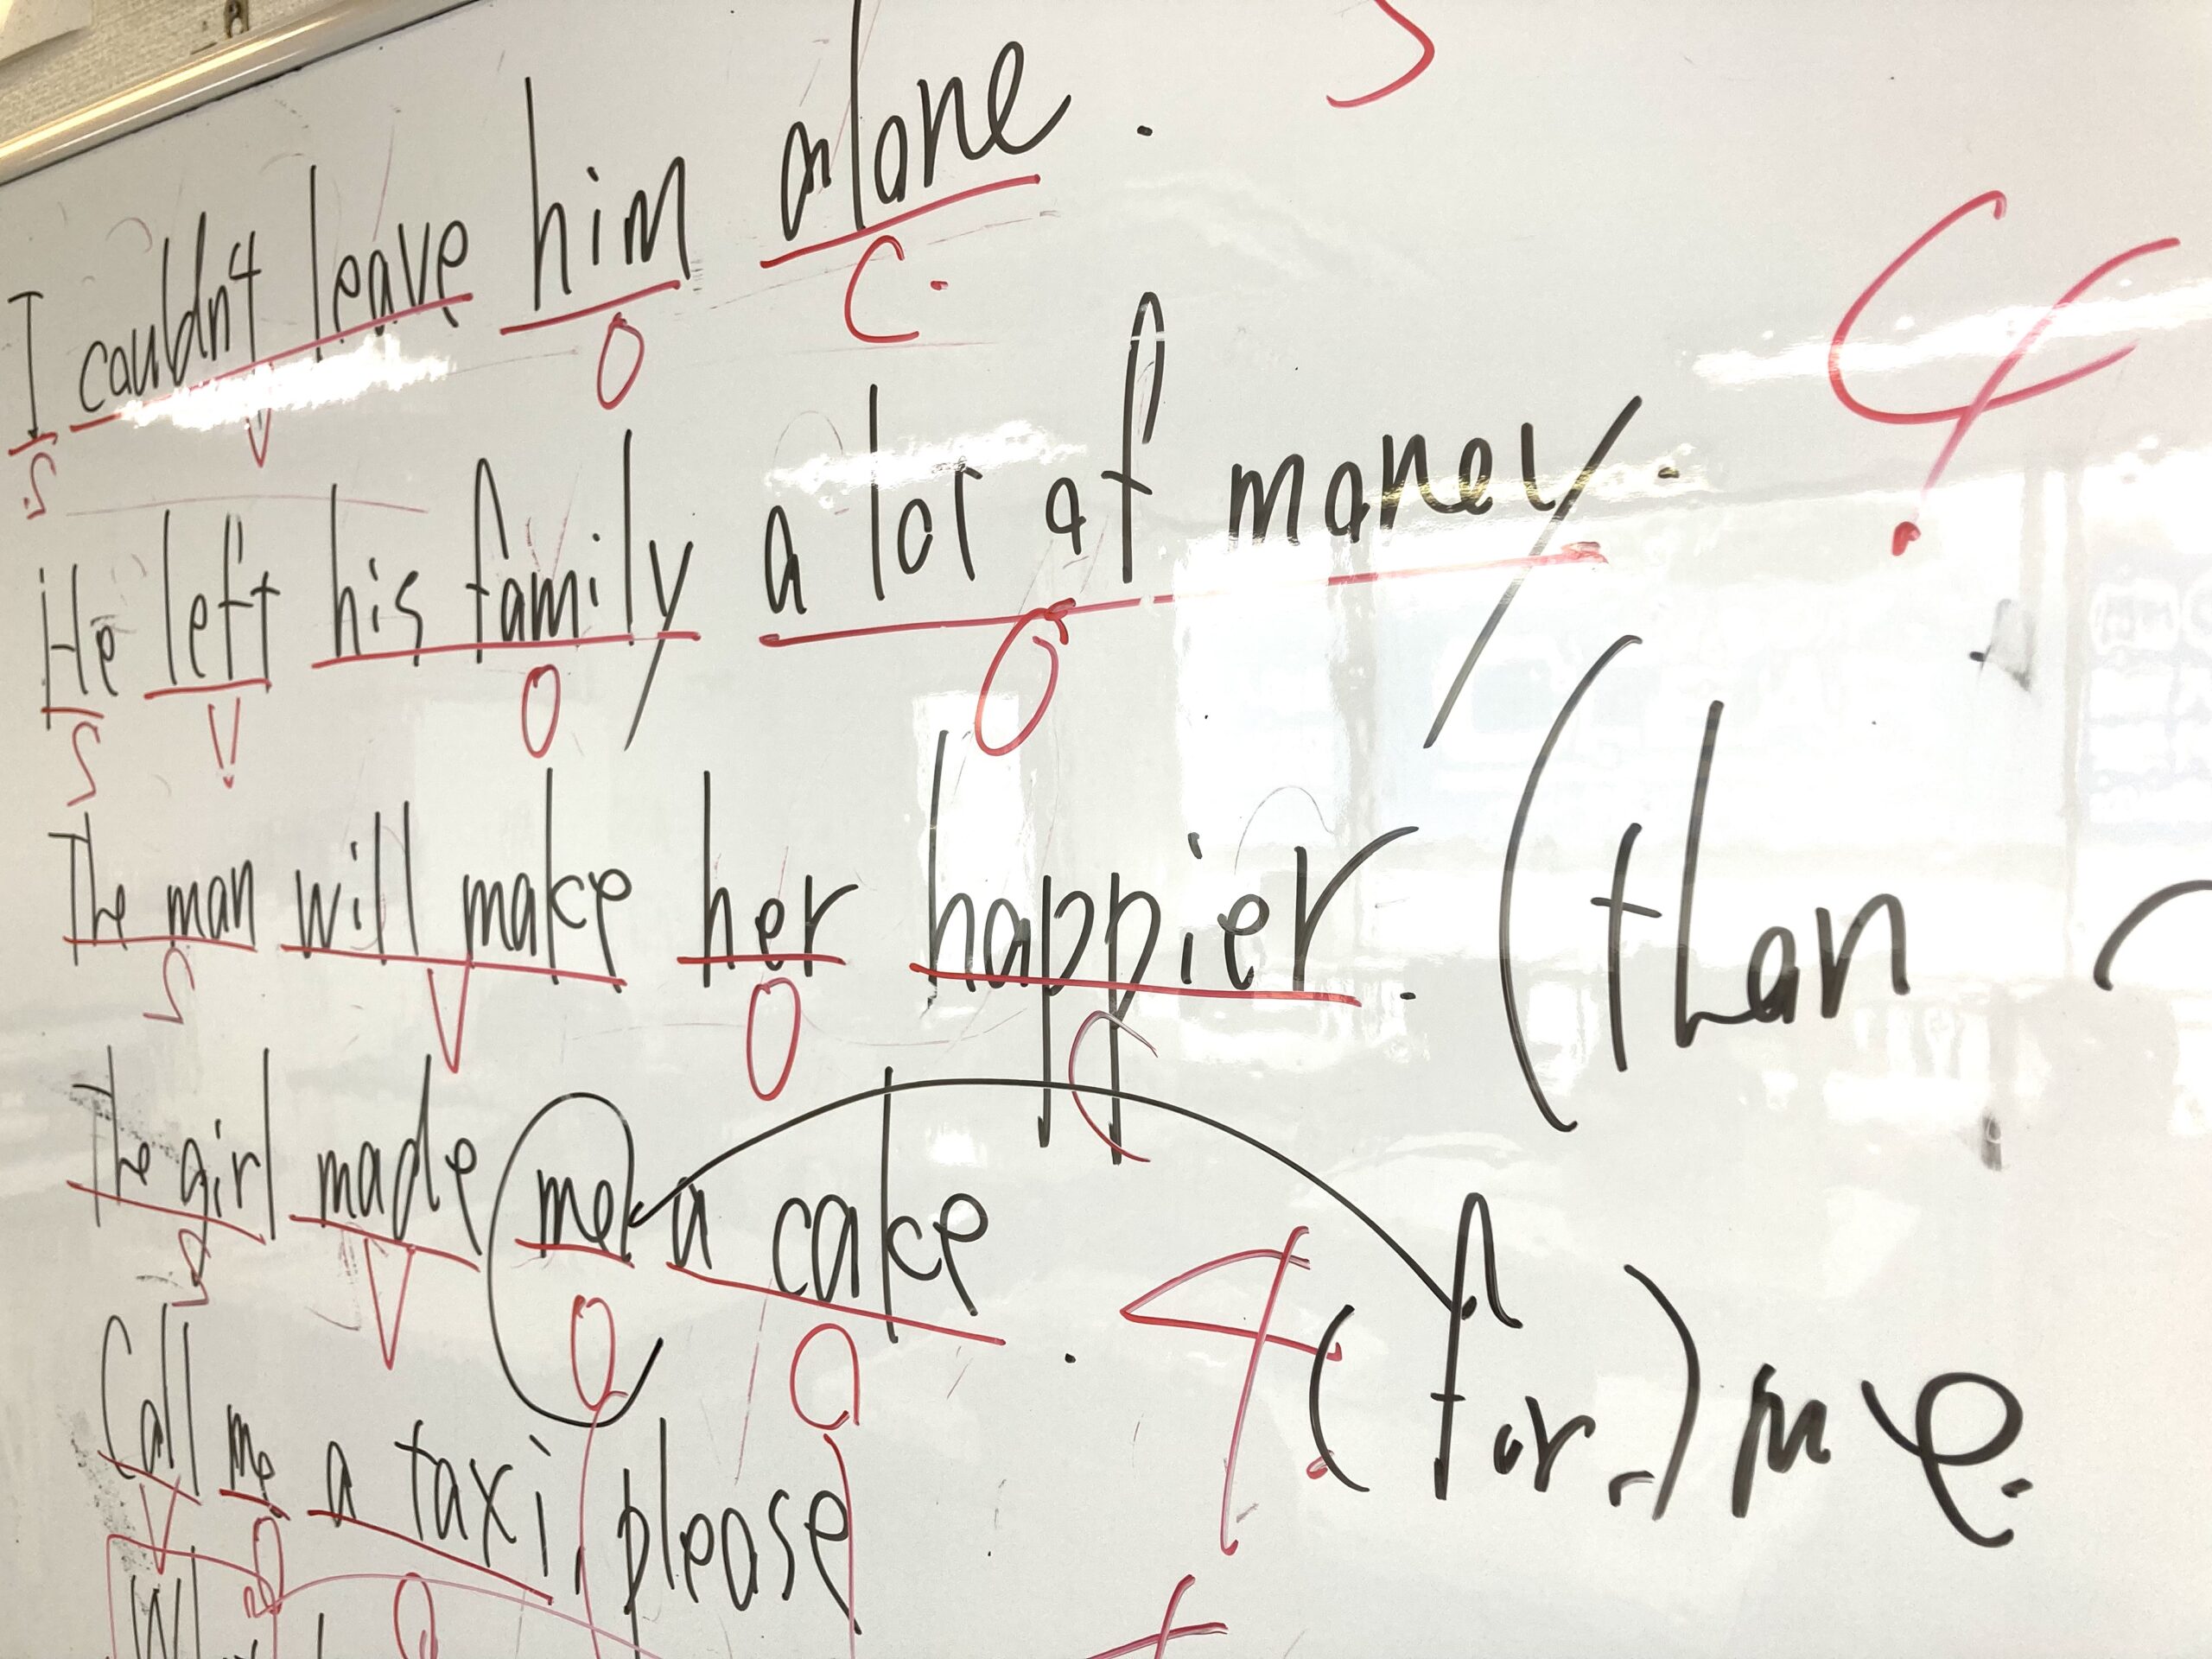 5
I couldn't leave him alone.
S V O C.
4.
He left his family a lot of money.
S V O O
The man will make her happier. (than
S V O C
The girl made me a cake. 4. (for) me.
S V O O
Call me a taxi, please
V O O